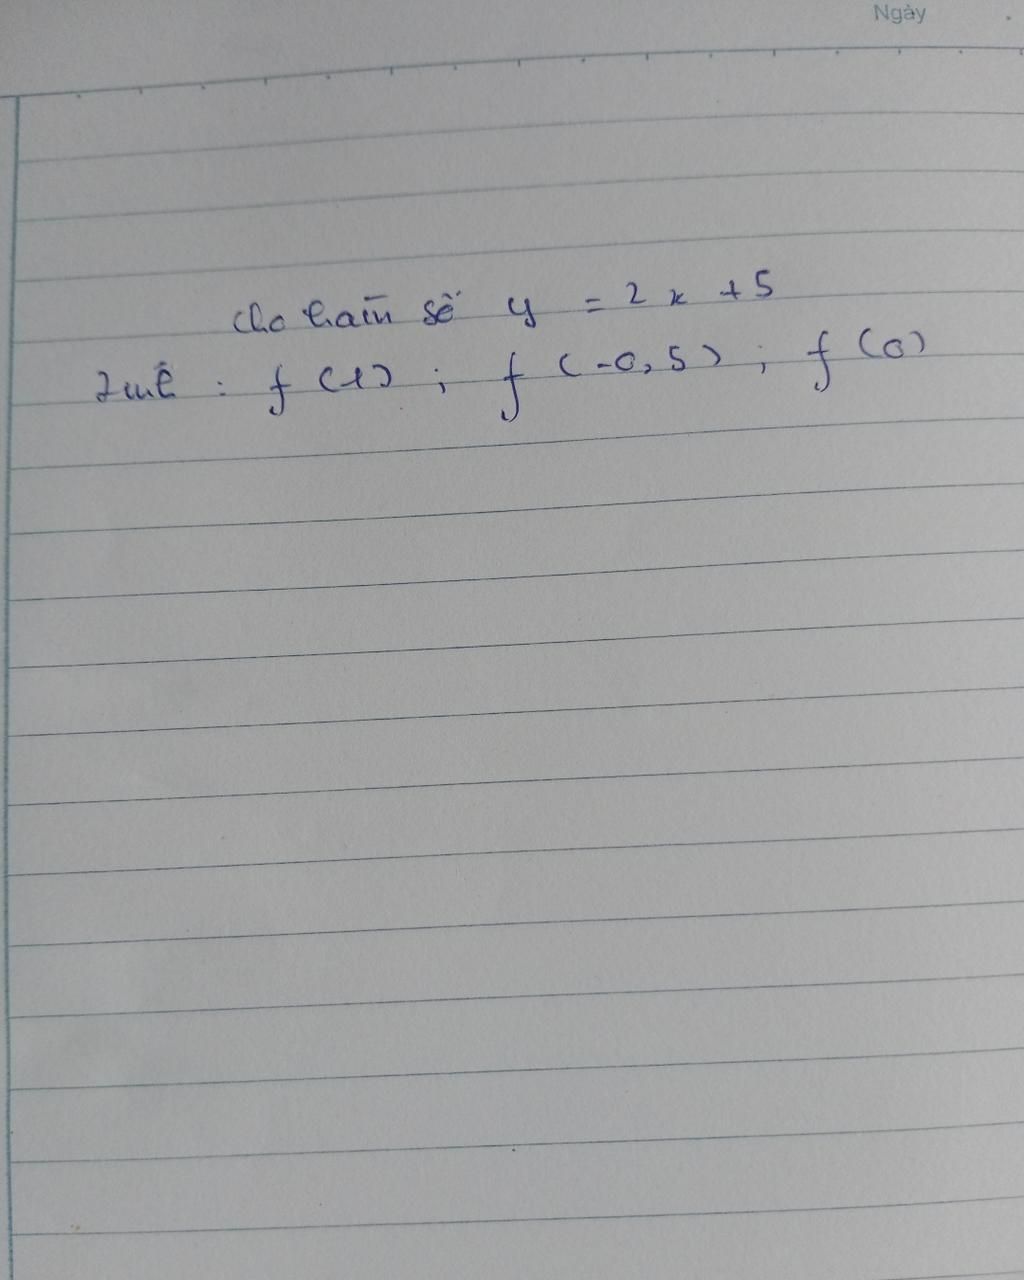 Ngày
cho hàm số y = 2x + 5
: f(1) ; f(-0,5) ; f(0)